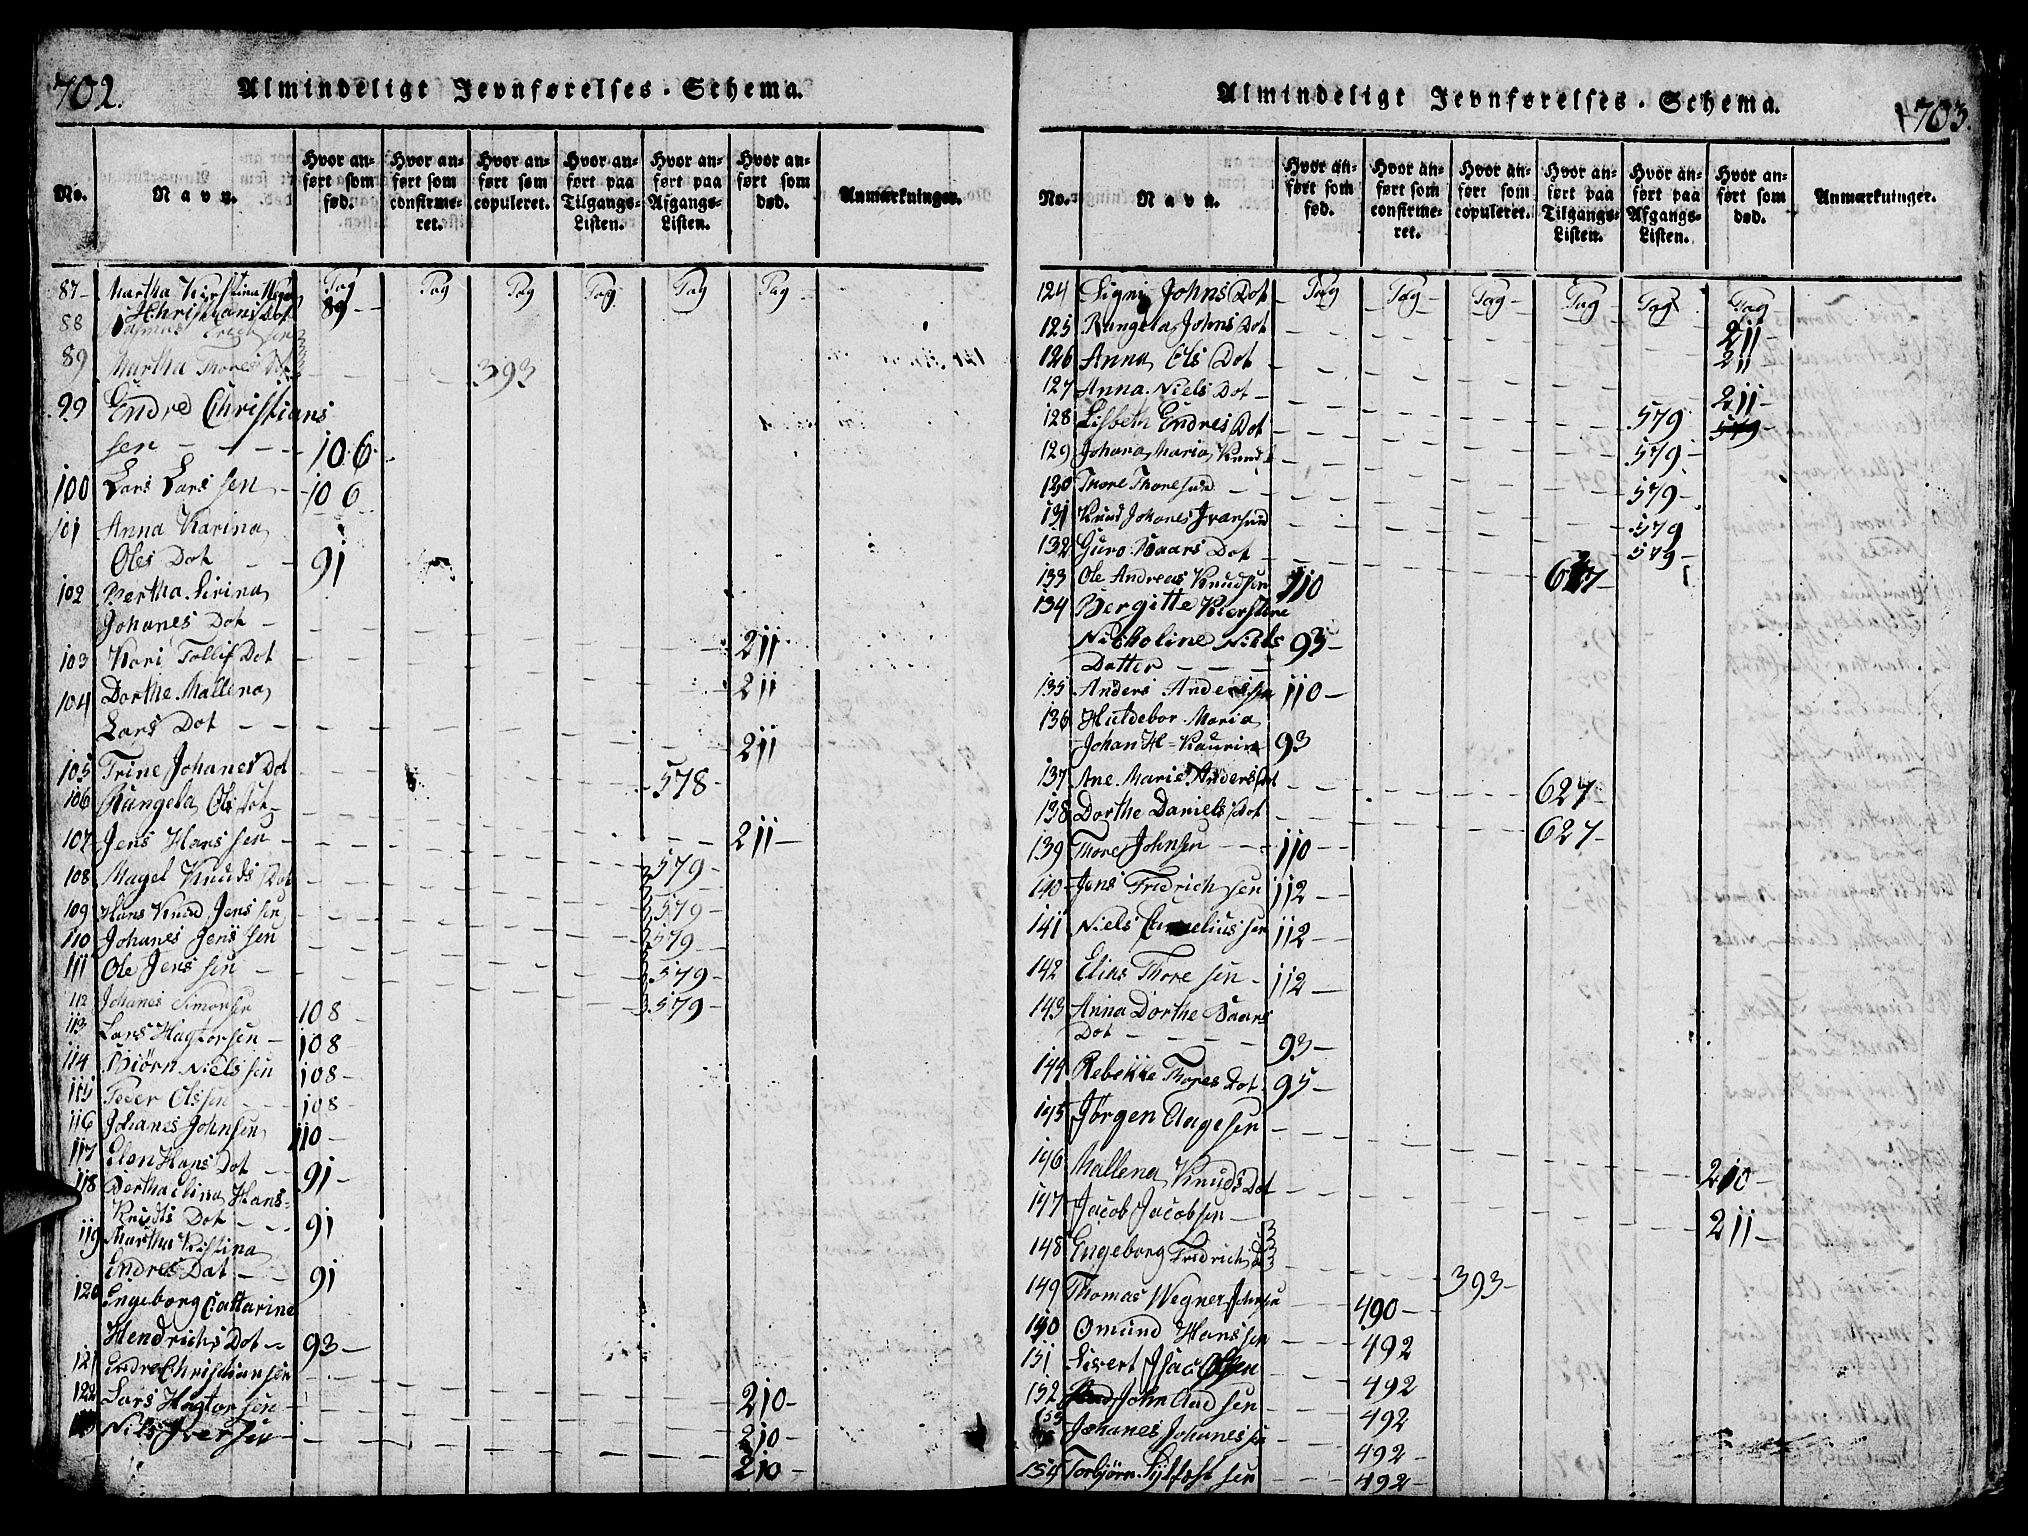 702.
Almindeligt Jevnførelses-Schema.
No.
Navn.
Hvor anført som fød.
Hvor anført som confirmeret.
Hvor anført som copuleret.
Hvor anført paa Tilgangs-Listen.
Hvor anført paa Afgangs-Listen.
Hvor anført som død.
Anmærkninger.
Pag Pag Pag Pag Pag Pag
87 Martha Kirstina
Christians Dot 89
88 Rasmus Erichsen
89 Martha Thores Dot 393
99 Endre Christians
sen 106
100 Lars Larssen 106
101 Anna Karina
Oles Dot 91
102 Bertha Sirina
Johanes Dot 211
103 Kari Tollif Dot 211
104 Dorthe Mallena
Lars Dot 211
105 Trine Johanes Dot 578
106 Rangela Ols Dot 211
107 Jens Hanssen 579
108 Magel Knuds Dot 579
109 Hans Knud Jenssen 579
110 Johanes Jenssen 579
111 Ole Jenssen 579
112 Johanes Simonsen 108
113 Lars Hagtorsen 108
114 Biørn Nielssen 108
115 Peder Olssen 108
116 Johanes Johnsen 110
117 Elen Hans Dot 91
118 Bertha Elina Hans
Knudts Dot 91
119 Martha Kistina
Endres Dat 91
120 Engeborg Cattarine
Hendrichs Dot 93
121 Endre Christiansen 210
122 Lars Hagtorsen 210
Nils Iversen 210
703.
Almindeligt Jevnførelses-Schema.
No.
Navn.
Hvor anført som fød.
Hvor anført som confirmeret.
Hvor anført som copuleret.
Hvor anført paa Tilgangs-Listen.
Hvor anført paa Afgangs-Listen.
Hvor anført som død.
Anmærkninger.
Pag Pag Pag Pag Pag Pag
124 Signi Johns Dot 211
125 Rangela Johns Dot 211
126 Anna Ols Dot 211
127 Anna Niels Dot 579 579
128 Lisbeth Endres Dot 579
129 Johana Maria Knud 579
130 Thore Thoresen 579
131 Knud Johanes Ivarsen 579
132 Guro Baars Dot 627
133 Ole Andreas Knudsen 110
134 Bergitte Kierstine
Nicholine Niels 93
Datter
135 Anders Anderssen 110
136 Huldebor Maria
Johan H Kaurin 93
137 Ane Marie Anders Dot 627
138 Dorthe Daniels Dot 627
139 Thore Johnsen 110
140 Jens Fredrichsen 112
141 Niels Corneliussen 112
142 Elias Thoresen 112
143 Anna Dorthe Baars
Dot 93
144 Rebekke Thores Dot 95
145 Jørgen Aagesen 210
146 Mallena Knuds Dot 211
147 Jacob Jacobsen
148 Engeborg Fredrich D 393
149 Thomas Wegner Johnsen 490
150 Omund Hanssen 492
151 Sivert Isac Olsen 492
152 John Aadsen 492
153 Johanes Johanessen 492
154 Torbjørn Syltfestsen 492